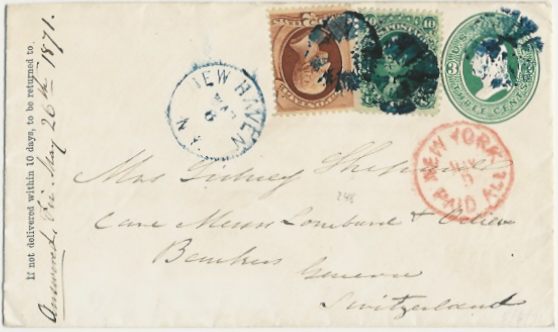 If not delivered within 10 days, to be returned to
Answered. Fri. May 26th 1871.
NEW HAVEN
MAY
NEW YORK
MAY
PAID ALL
THREE CENTS
3
10
Mrs Sidney
248
Care Messrs Lombard & Odier
Bankers Geneva
Switzerland